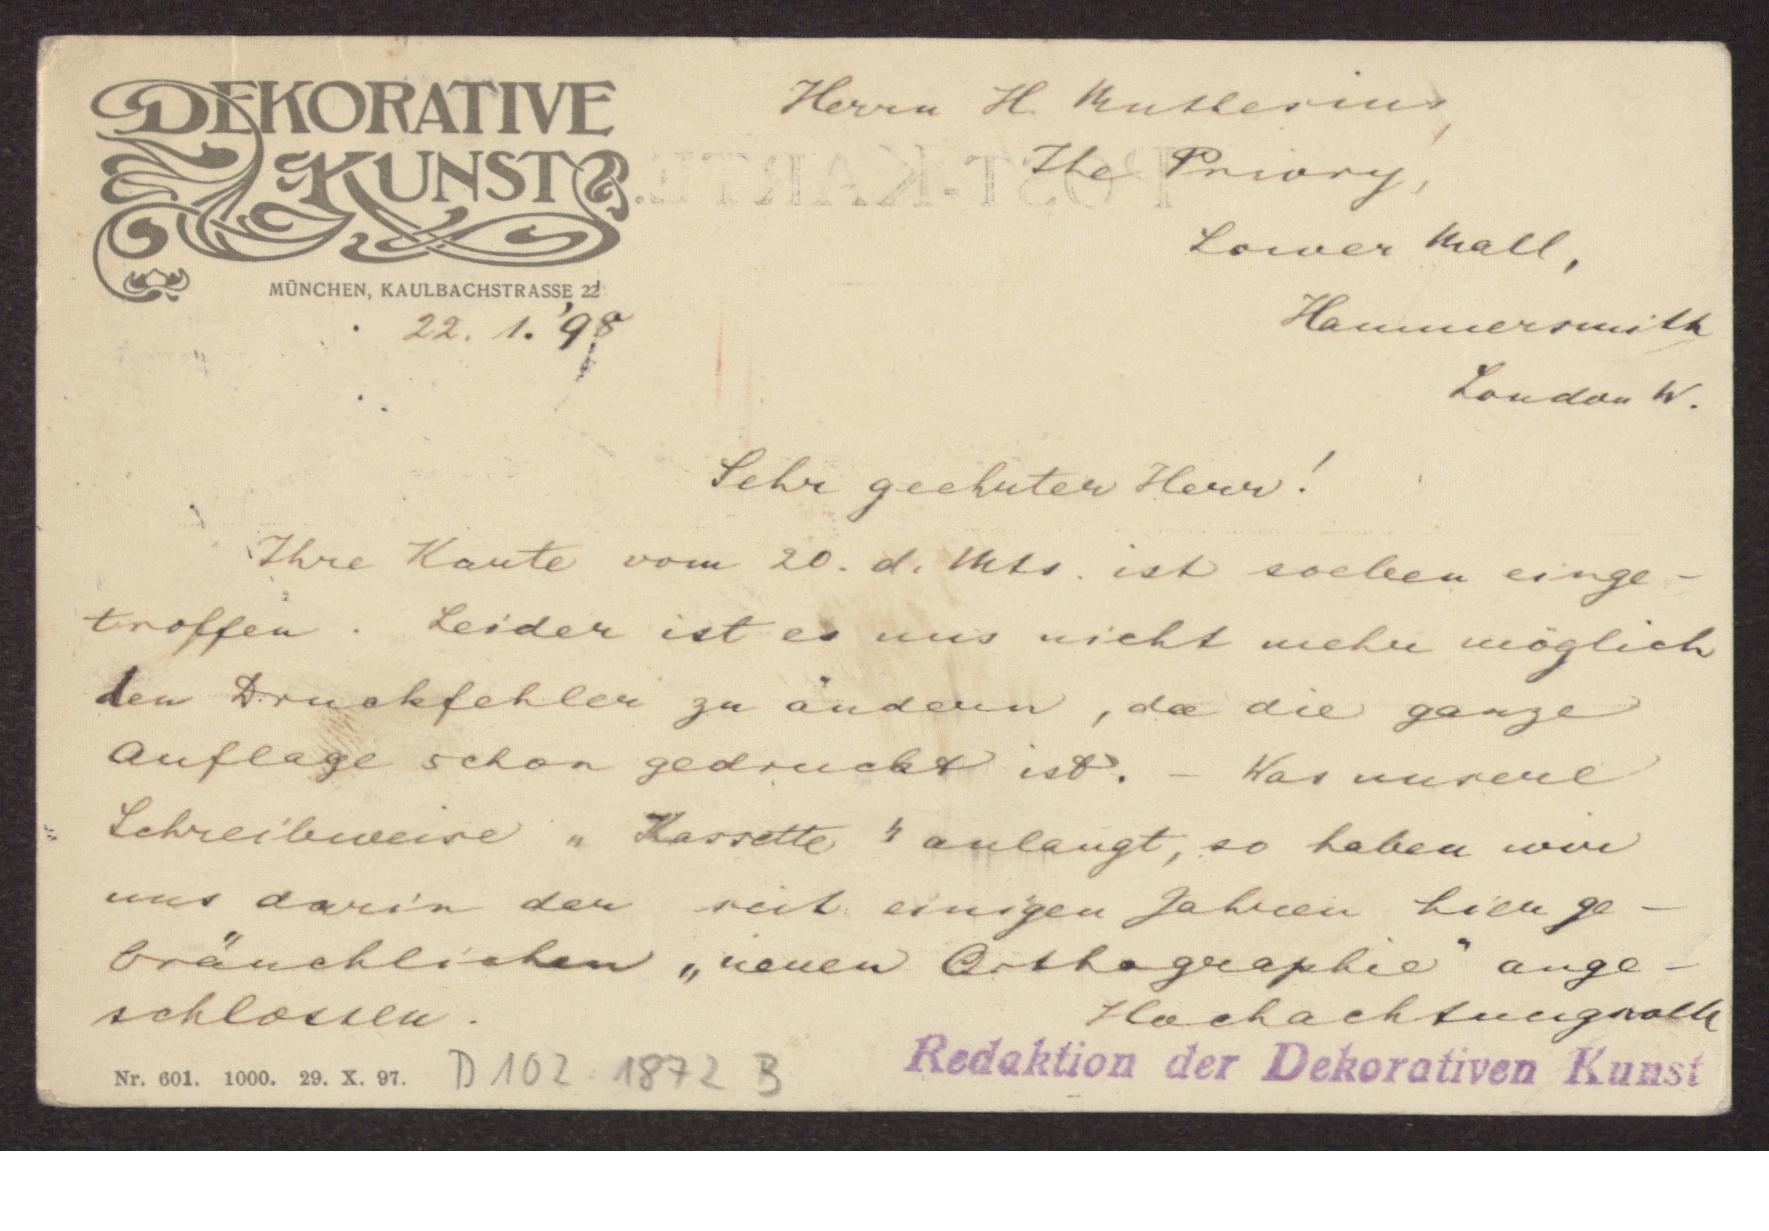 DEKORATIVE
KUNST
MÜNCHEN, KAULBACHSTRASSE 22
22. 1. '98
Herrn H. Muthesius,
The Priory,
Lower Mall,
Hammersmith
London W.
POST-KARTE.
Sehr geehrter Herr!
Ihre Karte vom 20. d. Mts. ist soeben einge-
troffen. Leider ist es uns nicht mehr möglich
den Druckfehler zu ändern, da die ganze
Auflage schon gedruckt ist. – Was unsere
Schreibweise „Kassette" anlangt, so haben wir
uns darin der seit einigen Jahren hier ge-
bräuchlichen „neuen Orthographie" ange-
schlossen.
Hochachtungsvoll
Redaktion der Dekorativen Kunst
Nr. 601. 1000. 29. X. 97.
D 102-1872 B